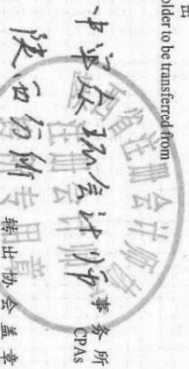 出
older to be transferred from
中审众环会计师事务所
CPAs
陕西分所
转出协会盖章
省注册会计师协
专用章